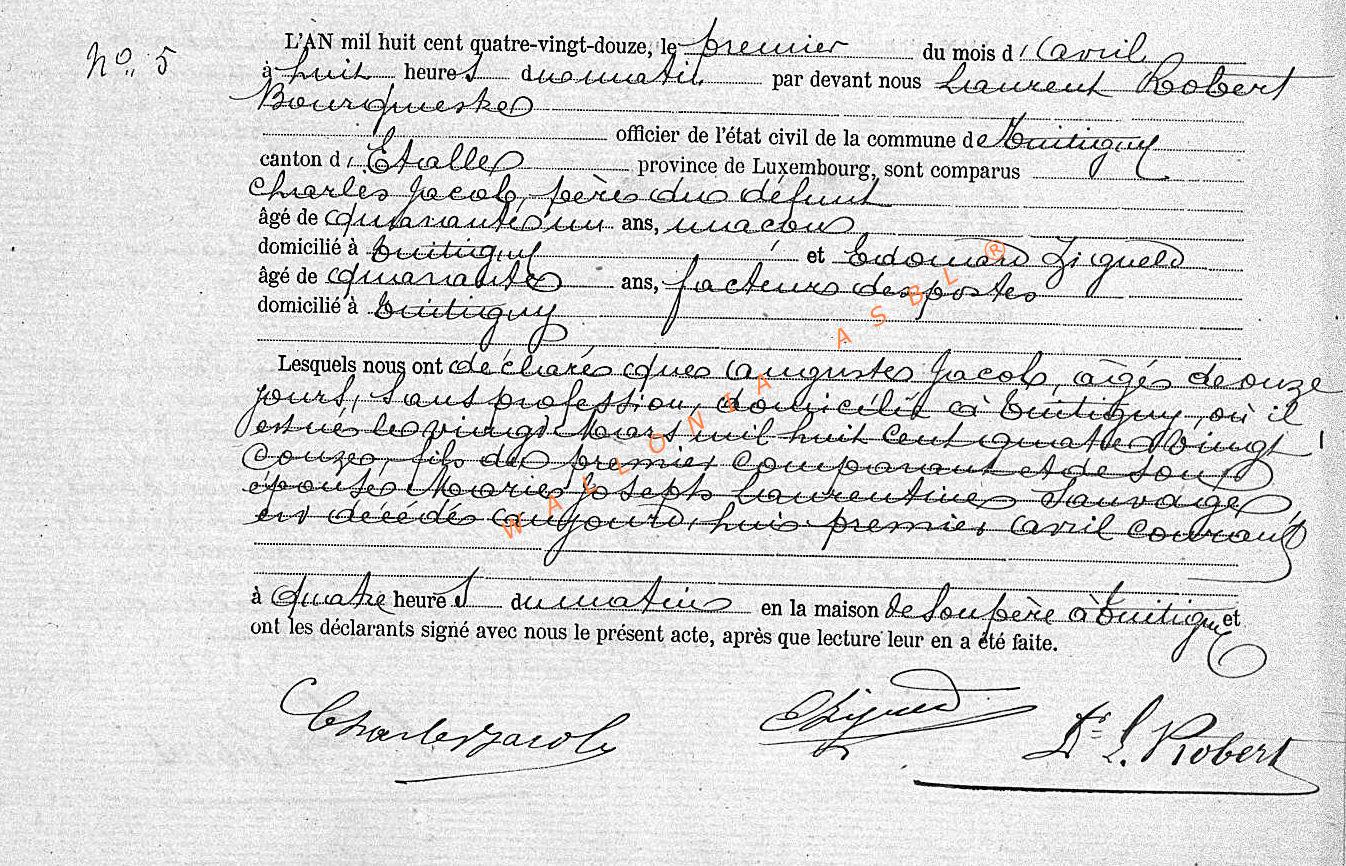 No. 5
L'AN mil huit cent quatre-vingt-douze, le premier du mois d'avril
à huit heures du matin par devant nous Laurent Robert
Bourgmestre
officier de l'état civil de la commune de Tintigny
canton d'Etalle province de Luxembourg, sont comparus
Charles Jacob, père du défunt
âgé de quarante un ans, maçon
domicilié à Tintigny et Edouard Zigued
âgé de quarante ans, facteur des postes
domicilié à Tintigny
Lesquels nous ont déclaré que Auguste Jacob, âgé de onze
jours, sans profession, domicilié à Tintigny, où il
est né le vingt Mars mil huit cent quatre vingt
douze, fils du premier comparant et de son
épouse Marie Joseph Laurentine Sauvage,
est décédé aujourd'hui premier avril courant
à quatre heures du matin en la maison de son père à Tintigny et
ont les déclarants signé avec nous le présent acte, après que lecture leur en a été faite.
Charles Jacob
EZigued
Dr L. Robert
WALLONIA ASBL ®